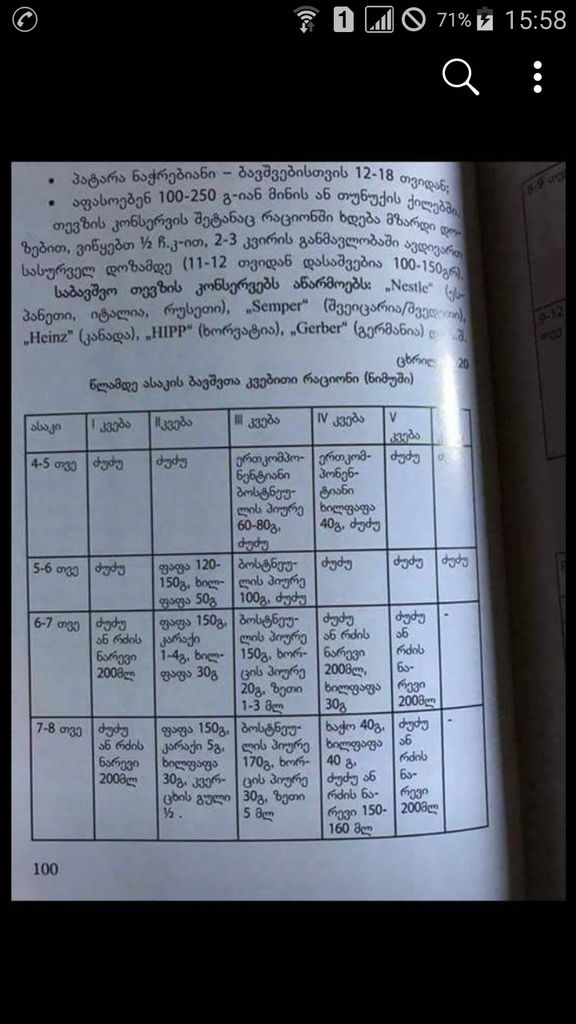 71% 15:58
• პატარა ნაჭრებიანი – ბავშვებისთვის 12-18 თვიდან;
• აფასოებენ 100-250 გ-იან მინის ან თუნუქის ქილებში.
თევზის კონსერვის შეტანაც რაციონში ხდება მზარდი დო-
ზებით, ვიწყებთ ½ ჩ.კ-ით, 2-3 კვირის განმავლობაში ავდივართ
სასურველ დოზამდე (11-12 თვიდან დასაშვებია 100-150გრ).
საბავშვო თევზის კონსერვებს აწარმოებს: „Nestle" (ეს-
პანეთი, იტალია, რუსეთი), „Semper" (შვეიცარია/შვედეთი),
„Heinz" (კანადა), „HIPP" (ხორვატია), „Gerber" (გერმანია)
ცხრილი 20
წლამდე ასაკის ბავშვთა კვებითი რაციონი (ნიმუში)
ასაკი | I კვება | IIკვება | III კვება | IV კვება | V კვება
4-5 თვე | ძუძუ | ძუძუ | ერთკომპო-
ნენტიანი
ბოსტნეუ-
ლის პიურე
60-80გ,
ძუძუ | ერთკომ-
პონენ-
ტიანი
ხილფაფა
40გ, ძუძუ | ძუძუ
5-6 თვე | ძუძუ | ფაფა 120-
150გ, ხილ-
ფაფა 50გ | ბოსტნეუ-
ლის პიურე
100გ, ძუძუ | ძუძუ | ძუძუ | ძუძუ
6-7 თვე | ძუძუ
ან რძის
ნარევი
200მლ | ფაფა 150გ,
კარაქი
1-4გ, ხილ-
ფაფა 30გ | ბოსტნეუ-
ლის პიურე
150გ, ხორ-
ცის პიურე
20გ, ზეთი
1-3 მლ | ძუძუ
ან რძის
ნარევი
200მლ,
ხილფაფა
30გ | ძუძუ
ან
რძის
ნა-
რევი
200მლ | -
7-8 თვე | ძუძუ
ან რძის
ნარევი
200მლ | ფაფა 150გ,
კარაქი 5გ,
ხილფაფა
30გ, კვერ-
ცხის გული
½ . | ბოსტნეუ-
ლის პიურე
170გ, ხორ-
ცის პიურე
30გ, ზეთი
5 მლ | ხაჭო 40გ,
ხილფაფა
40 გ,
ძუძუ ან
რძის ნა-
რევი 150-
160 მლ | ძუძუ
ან
რძის
ნა-
რევი
200მლ | -
100